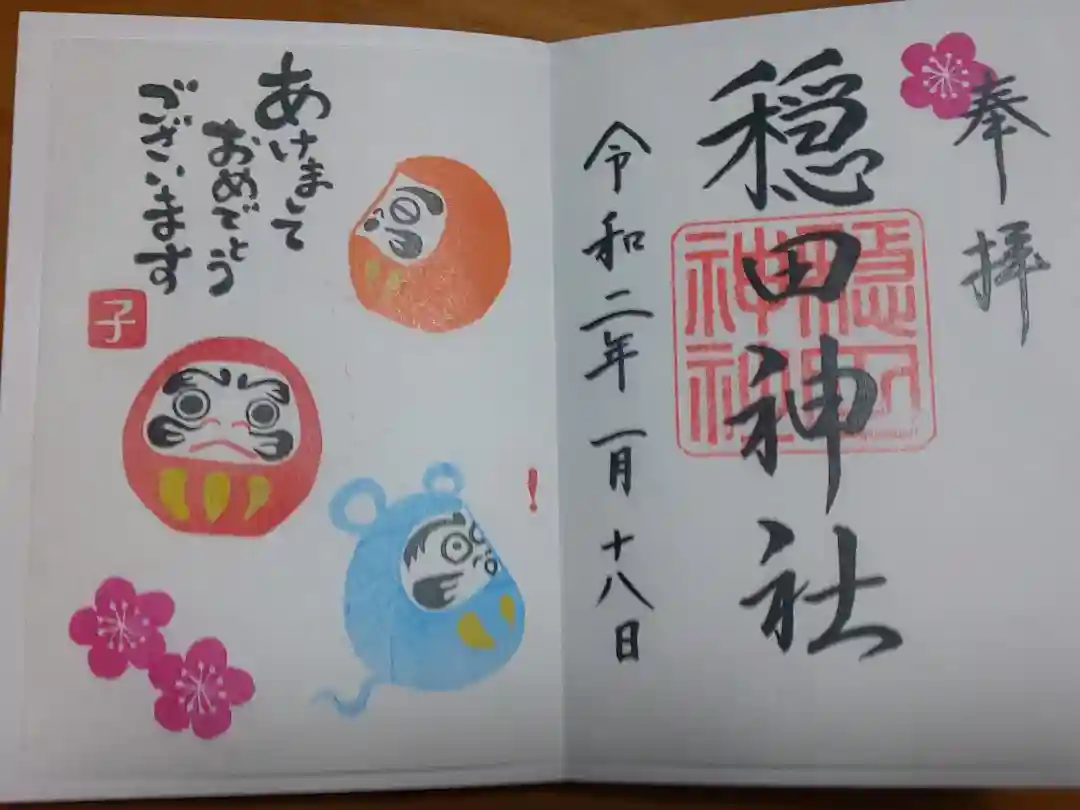 奉拝
穏田神社
穏田
神社
令和二年一月十八日
あけまして
おめでとう
ございます
子
!